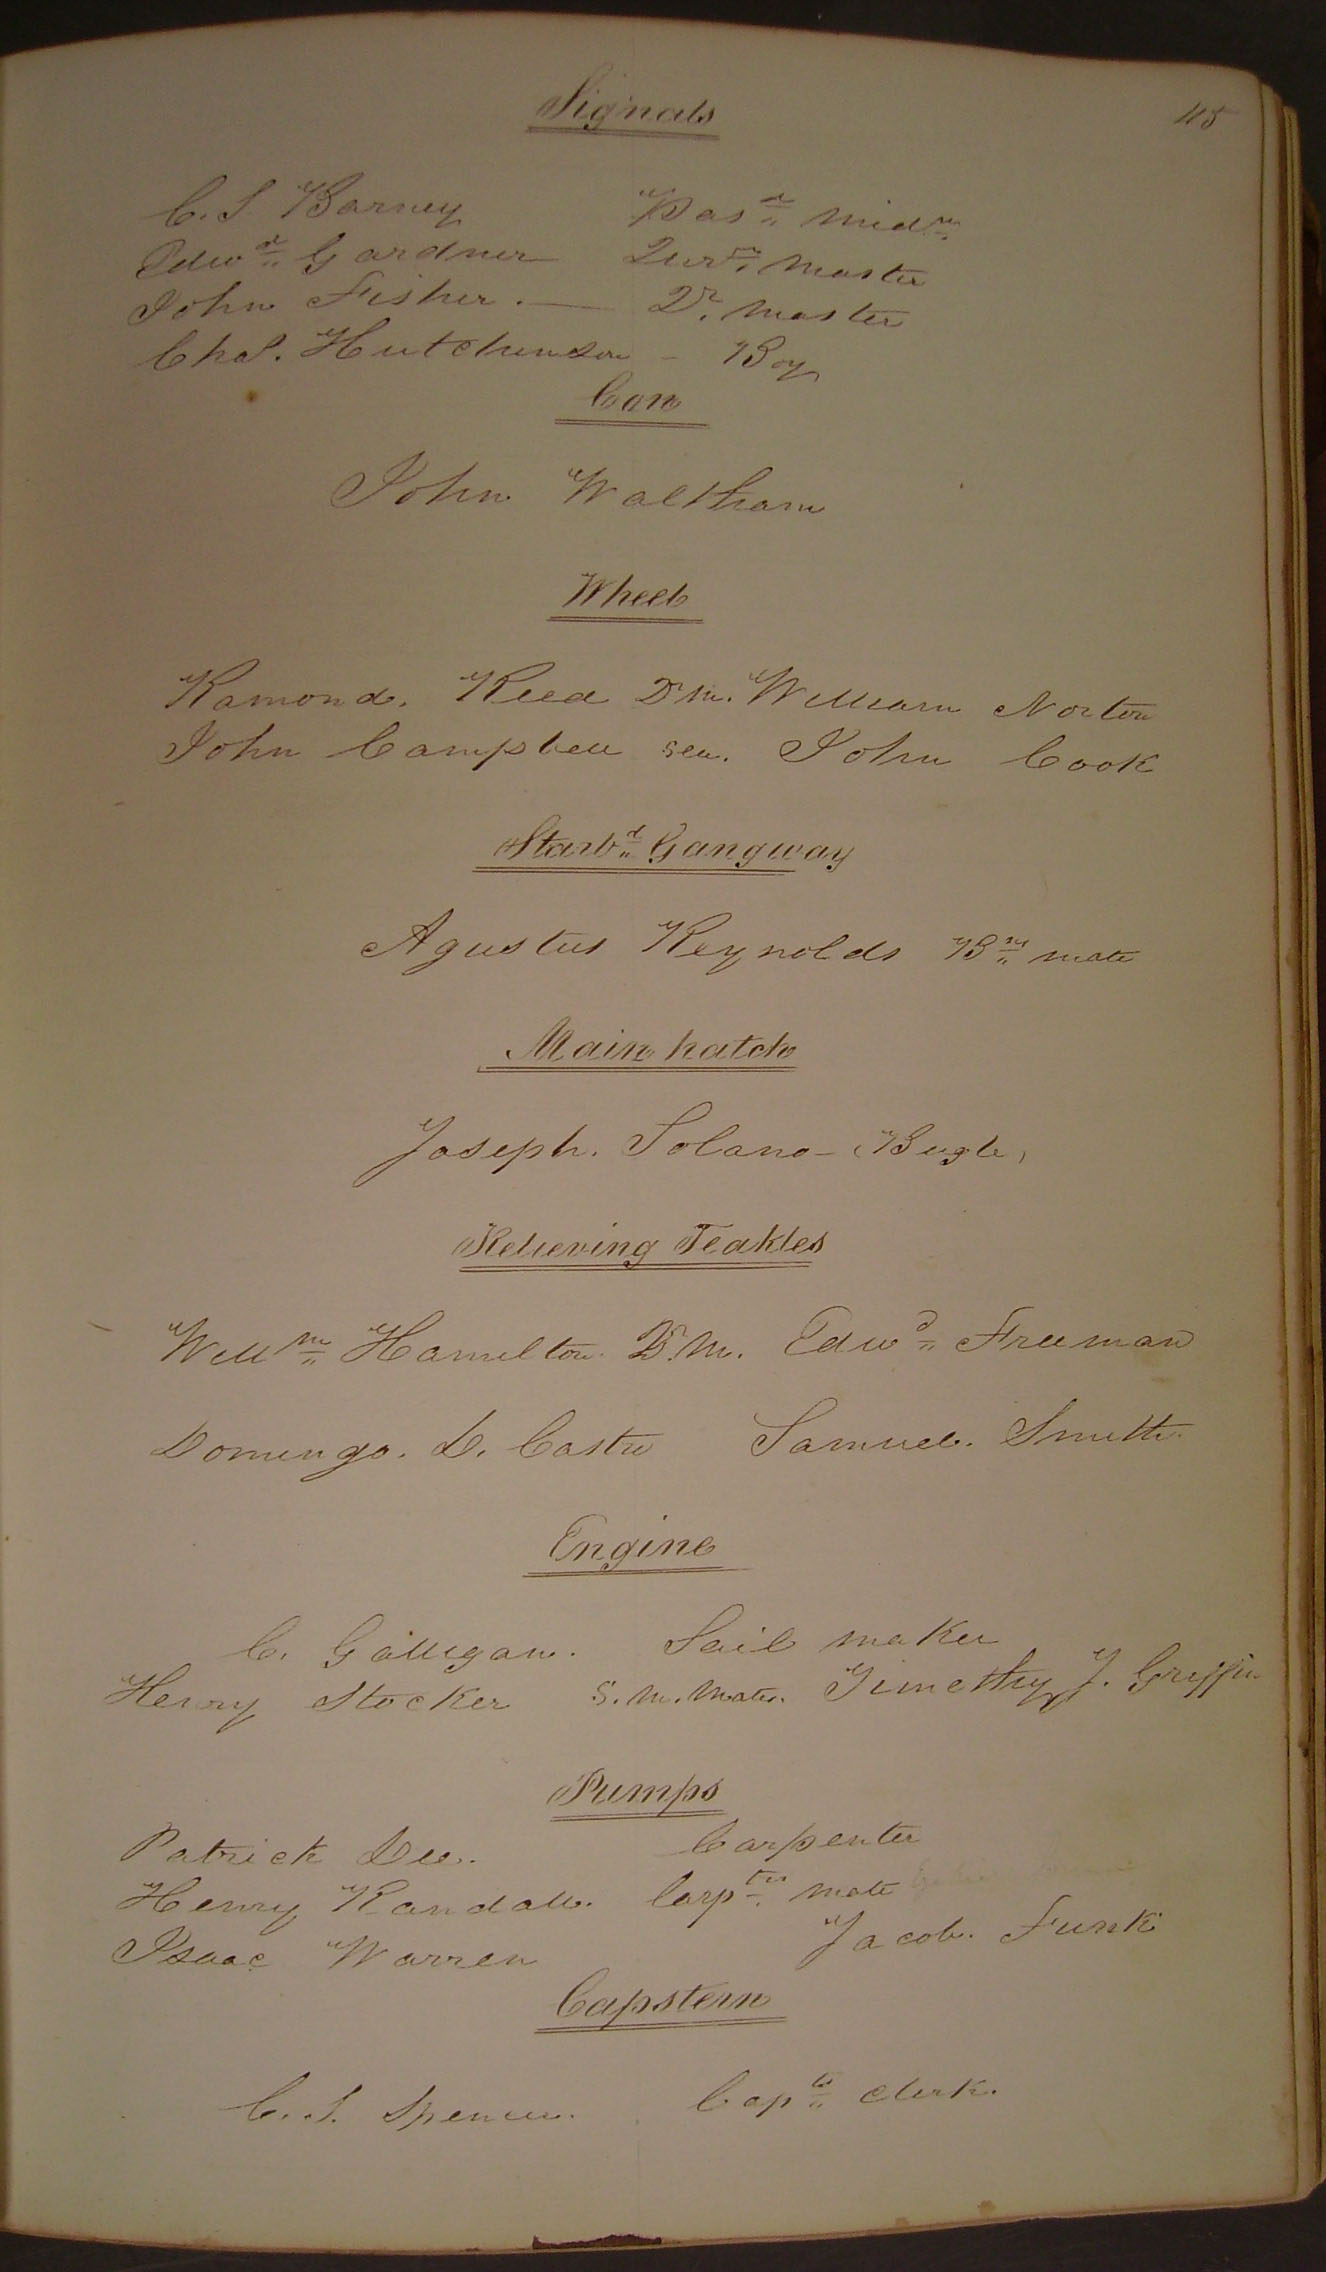 115
Signals
C. S. Barney Pas^d Mid^n
Edw^d Gardner Qur^tr Master
John Fisher. — Qr. Master
Chas. Hutchinson - Boy
Con
John Waltham
Wheel
Ramond. Reed Q^r M. William Norton
John Campbell sea. John Cook
Starb^d Gangway
Agustus Reynolds B^ns mate
Main hatch
Joseph. Solano - Bugle,
Relieving Teakles
Will^m Hamilton Q^r M. Edw^d Freeman
Domingo. D. Castro Samuel. Smith.
Engine
C. Galligan. Sail maker
Henry Stocker S. M. Mate. Timothy J. Griffin
Pumps
Patrick Dee. Carpenter
Henry Randall. Carp^trs mate
Isaac Warren Jacob. Funk
Capstern
C. S. Spencer. Cap^ts clerk.